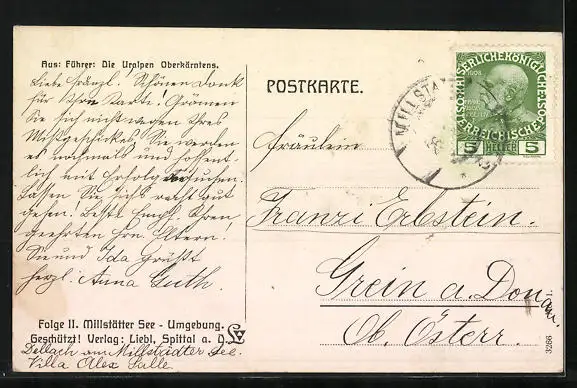 Aus: Führer: Die Uralpen Oberkärntens.
Liebe Franzl! Schönen Dank
für Ihre Karte! Grämen
Sie sich nicht wegen Ihres
Mißgeschickes. Sie werden
es nochmals und hoffent-
lich mit Erfolg versuchen.
Lassen Sie sichs recht gut
gehen. Beste Empf. Ihren
geehrten Frn Eltern!
Sie und Ida grüßt
herzl: Anna Guth.
Folge II. Millstätter See - Umgebung.
Geschützt! Verlag: Liebl, Spittal a. D.
Dellach am Millstädter See.
Villa Alex
POSTKARTE.
KAISERLICHE KÖNIGLICHE
ÖSTERREICHISCHE
5 HELLER 5
MILLSTA
Fräulein
Franzi Erbstein.
Grein a. Donau.
Ob. Österr.
3286